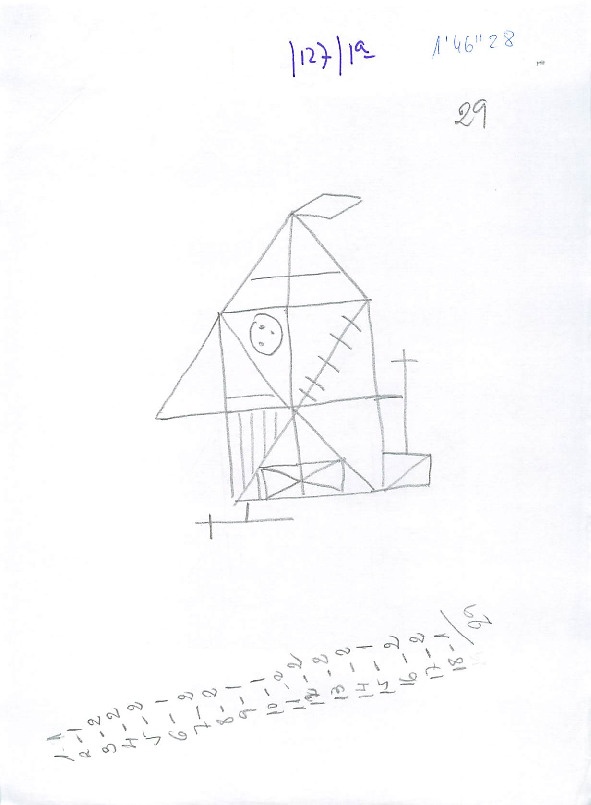 |127|1ª
1'46"28
29
1 - 1
2 - 1
3 - 2
4 - 2
5 - 2
6 - 1
7 - 2
8 - 2
9 - 1
10 - 1
11 - 2
12 - 2
13 - 2
14 - 2
15 - 1
16 - 2
17 - 2
18 - 1
29